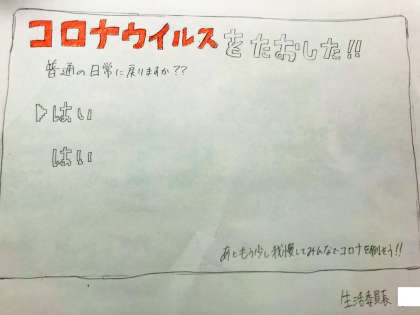 コロナウイルスをたおした!!
普通の日常に戻りますか??
▷はい
はい
あともう少し我慢してみんなでコロナを倒そう!!
生活委員長